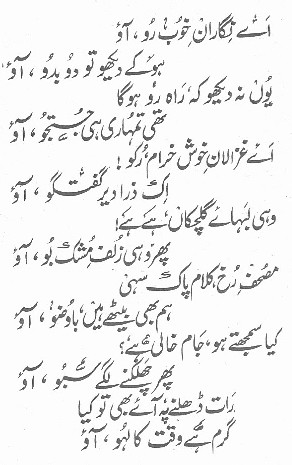 اے نگارانِ خوب رُو، آؤ
ہو کے دیکھو تو دُو بدُو، آؤ
یُوں نہ دیکھو کہ رَاہ رَو ہوگا
تھی تمہاری ہی جستجُو، آؤ
اے غزالانِ خوش خرام رُکو!
اِک ذرا دیر گفتگو، آؤ
وہی لبہائے گلچکاں ہے ہے!
پھر وہی زلفِ مُشک بُو، آؤ
مصحفِ رُخ، کلامِ پاک سہی
ہم بھی بیٹھے ہیں باوضو، آؤ
کیا سمجھتے ہو، جام خالی ہے؟
پھر چھلکنے لگے سَبُو، آؤ
رات ڈھلنے پہ آئے بھی تو کیا
گرم ہے وقت کا لہُو، آؤ